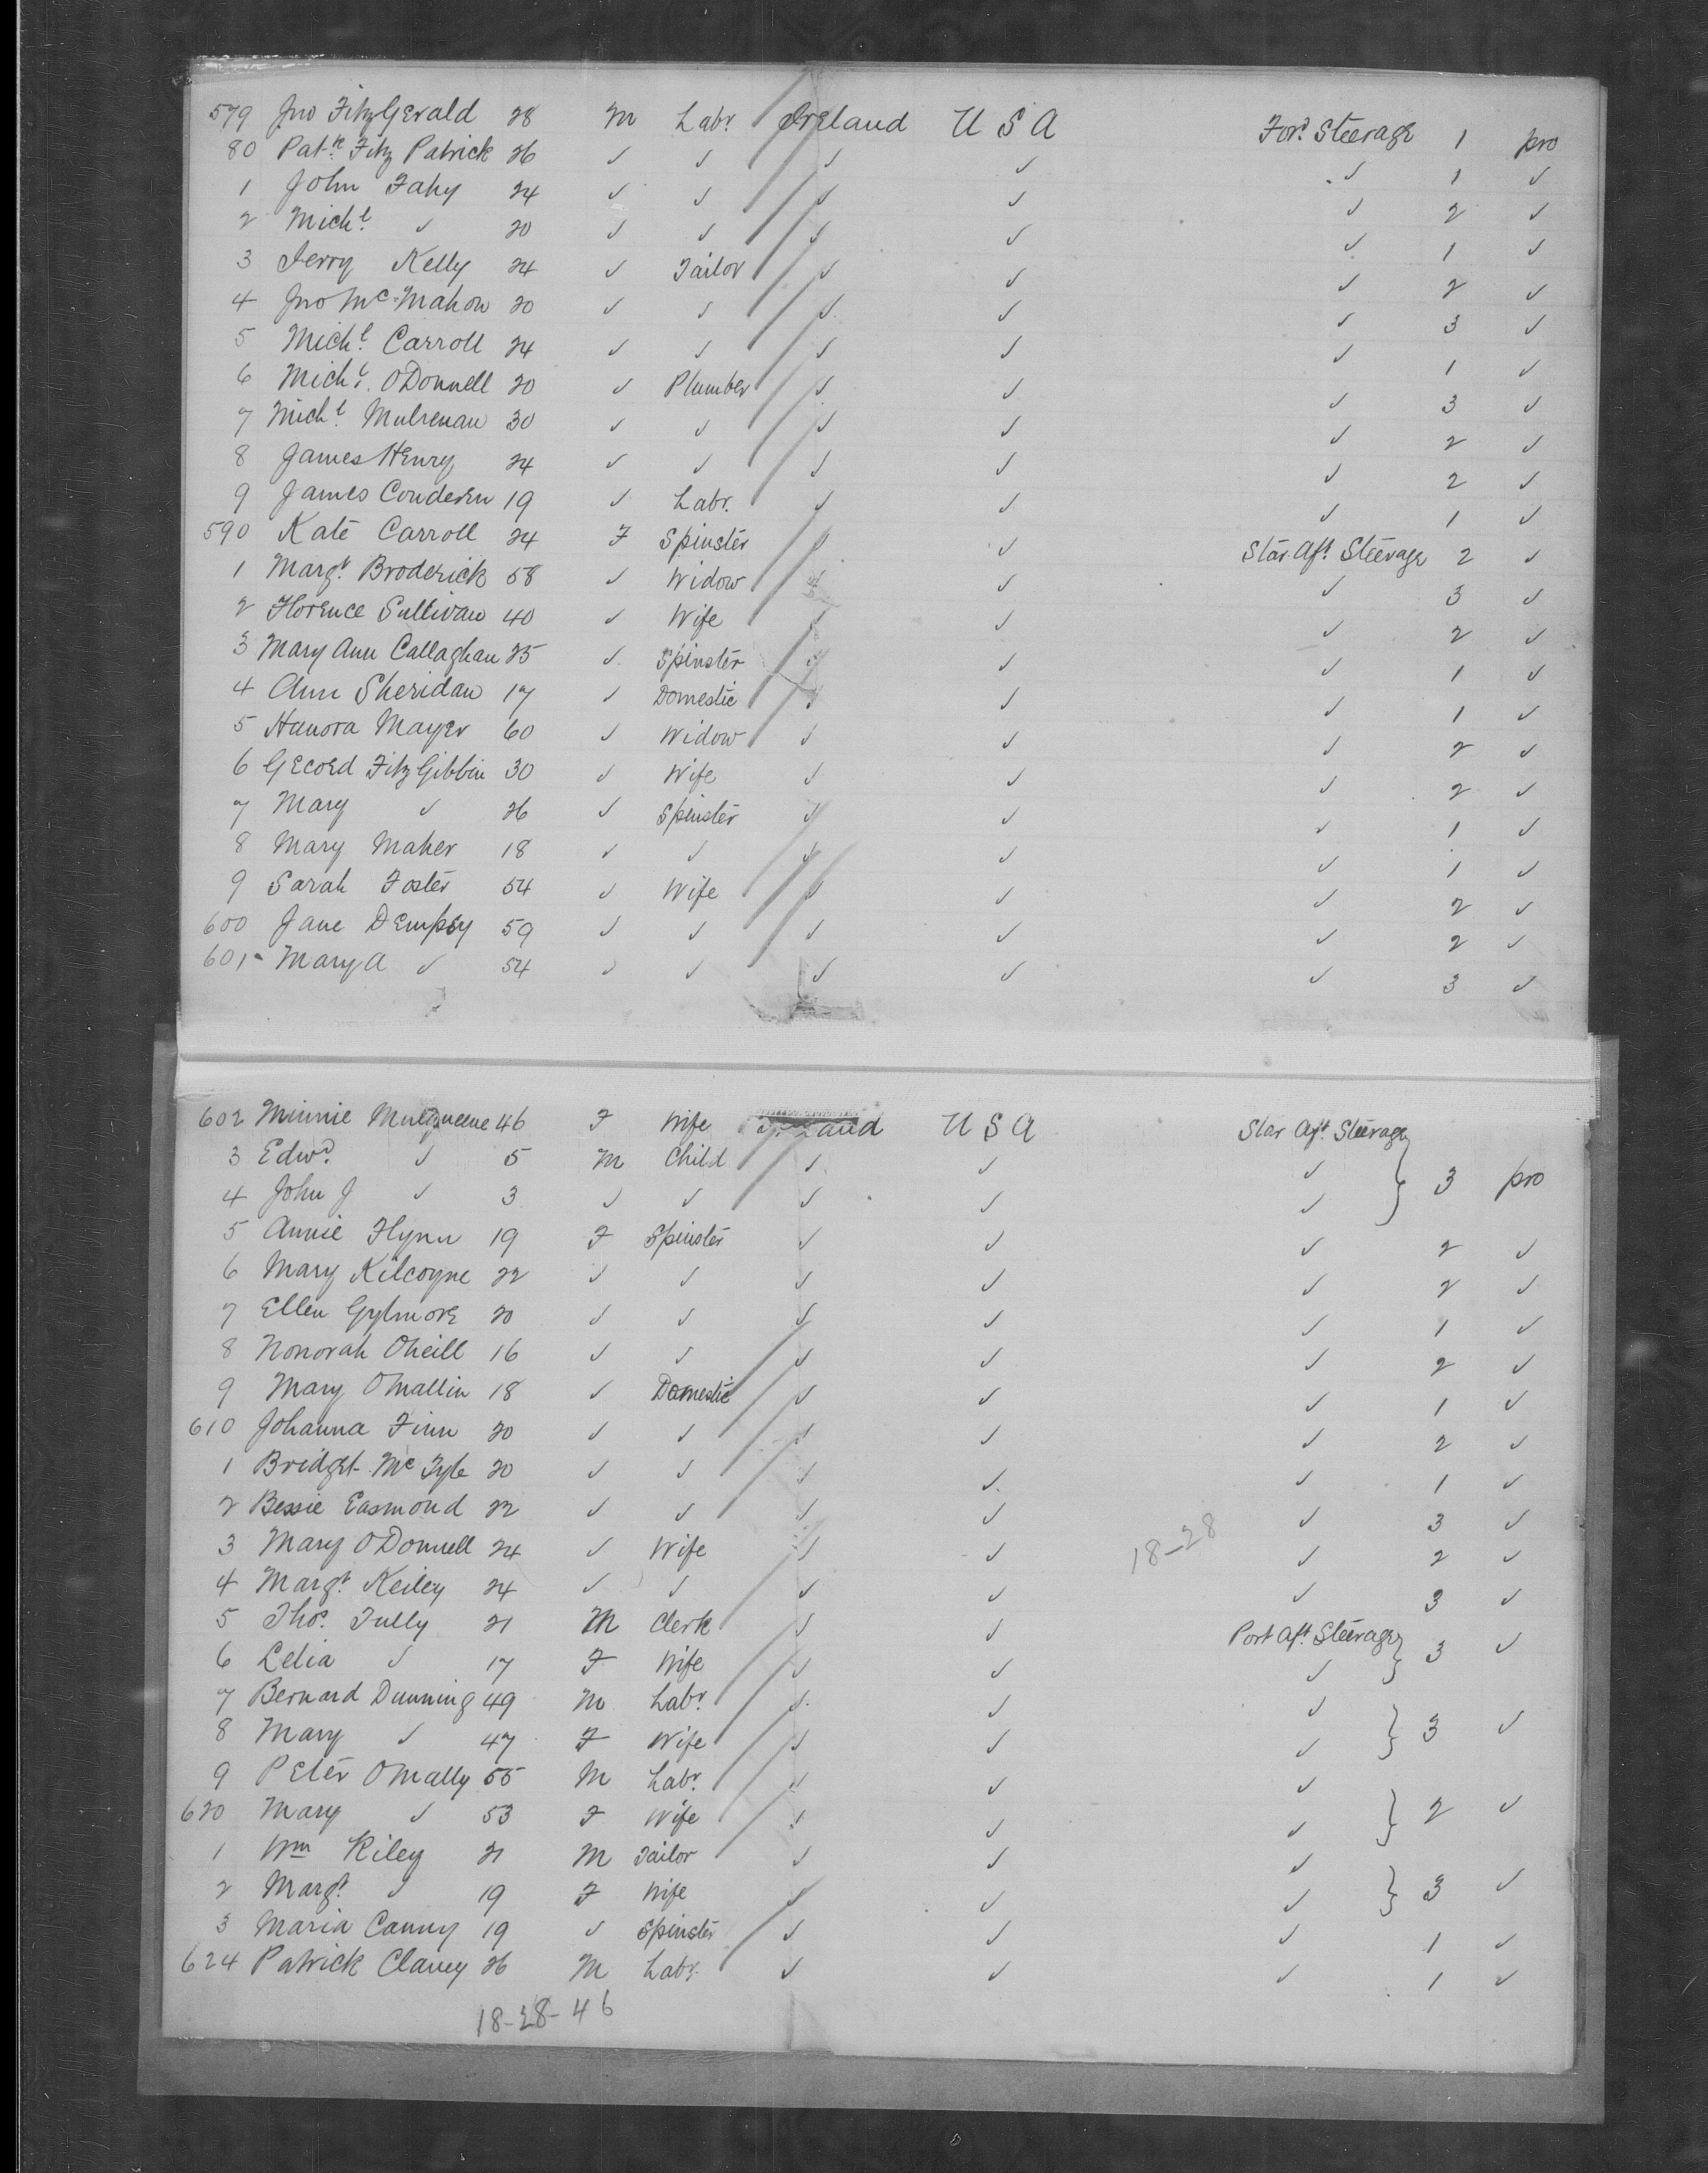 579 Jno FitzGerald 28 M Labr. Ireland U S A Ford. Steerage 1 pro
80 Patk. Fitz Patrick 26 ✓ ✓ ✓ ✓ ✓ 1 ✓
1 John Fahy 24 ✓ ✓ ✓ ✓ ✓ 2 ✓
2 Michl. ✓ 20 ✓ ✓ ✓ ✓ ✓ 1 ✓
3 Jerry Kelly 24 ✓ Tailor ✓ ✓ ✓ 2 ✓
4 Jno McMahon 20 ✓ ✓ ✓ ✓ ✓ 3 ✓
5 Michl. Carroll 24 ✓ ✓ ✓ ✓ ✓ 1 ✓
6 Michl. ODonnell 20 ✓ Plumber ✓ ✓ ✓ 3 ✓
7 Michl. Mulrenan 30 ✓ ✓ ✓ ✓ ✓ 2 ✓
8 James Henry 24 ✓ ✓ ✓ ✓ ✓ 2 ✓
9 James Conderen 19 ✓ Labr. ✓ ✓ ✓ 1 ✓
590 Kate Carroll 24 F Spinster ✓ ✓ Star. Aft Steerage 2 ✓
1 Margt. Broderick 58 ✓ Widow ✓ ✓ ✓ 3 ✓
2 Florence Sullivan 40 ✓ Wife ✓ ✓ ✓ 2 ✓
3 Mary Ann Callaghan 25 ✓ Spinster ✓ ✓ ✓ 1 ✓
4 Ann Sheridan 17 ✓ Domestic ✓ ✓ ✓ 1 ✓
5 Hanora Mayer 60 ✓ Widow ✓ ✓ ✓ 2 ✓
6 FitzGibbin 30 ✓ Wife ✓ ✓ ✓ 2 ✓
7 Mary ✓ 26 ✓ Spinster ✓ ✓ ✓ 1 ✓
8 Mary Maher 18 ✓ ✓ ✓ ✓ ✓ 1 ✓
9 Sarah Foster 54 ✓ Wife ✓ ✓ ✓ 2 ✓
600 Jane Dempsy 59 ✓ ✓ ✓ ✓ ✓ 2 ✓
601 Mary A ✓ 54 ✓ ✓ ✓ ✓ ✓ 3 ✓
602 Minnie Mulqueene 46 F Wife Ireland U S A Star Aft. Steerage
3 Edwd. ✓ 5 M Child ✓ ✓ ✓ } 3 pro
4 John J ✓ 3 ✓ ✓ ✓ ✓ ✓
5 Annie Flynn 19 F Spinster ✓ ✓ ✓ 2 ✓
6 Mary Kilcoyne 22 ✓ ✓ ✓ ✓ ✓ 2 ✓
7 Ellen Gylmore 20 ✓ ✓ ✓ ✓ ✓ 1 ✓
8 Nonorah Oneill 16 ✓ ✓ ✓ ✓ ✓ 2 ✓
9 Mary OMallin 18 ✓ Domestic ✓ ✓ ✓ 1 ✓
610 Johanna Finn 20 ✓ ✓ ✓ ✓ ✓ 2 ✓
1 Bridget Mc Tyle 20 ✓ ✓ ✓ ✓ ✓ 1 ✓
2 Bessie Easmond 22 ✓ ✓ ✓ ✓ ✓ 3 ✓
3 Mary ODonnell 24 ✓ Wife ✓ ✓ 18-28 ✓ 2 ✓
4 Margt. Keiley 24 ✓ ✓ ✓ ✓ ✓ 3 ✓
5 Thos. Tully 21 M Clerk ✓ ✓ Port Aft Steerage } 3 ✓
6 Lelia ✓ 17 F Wife ✓ ✓ ✓
7 Bernard Dunning 49 M Labr. ✓ ✓ ✓ } 3 ✓
8 Mary ✓ 47 F Wife ✓ ✓ ✓
9 Peter OMally 55 M Labr. ✓ ✓ ✓ } 2 ✓
620 Mary ✓ 53 F Wife ✓ ✓ ✓
1 Wm Riley 21 M Tailor ✓ ✓ ✓ } 3 ✓
2 Margt. ✓ 19 F Wife ✓ ✓ ✓
3 Maria Canny 19 ✓ Spinster ✓ ✓ ✓ 1 ✓
624 Patrick Clancy 26 M Labr. ✓ ✓ ✓ 1 ✓
18-28-46